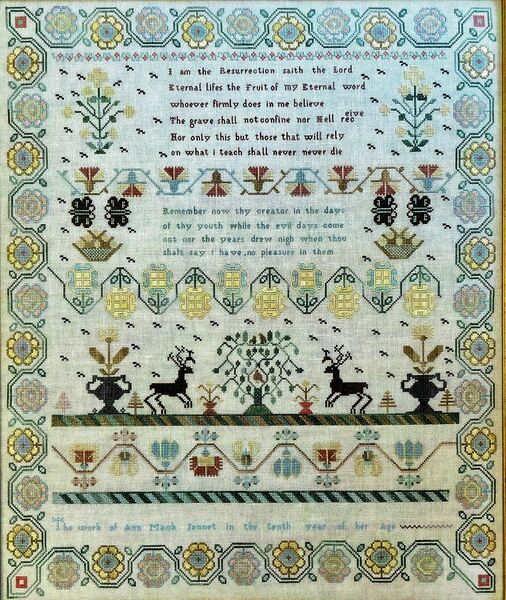 I am the Resurrection saith the Lord
Eternal lifes the Fruit of my Eternal word
whoever firmly does in me believe
The grave shall not confine nor Hell receive
Nor only this but those that will rely
on what i teach shall never never die
Remember now thy creator in the days
of thy youth while the evil days come
not nor the years drew nigh when thou
shalt say i have,no pleasure in them
The work of Ann Mack Jennet in the tenth year of her Age